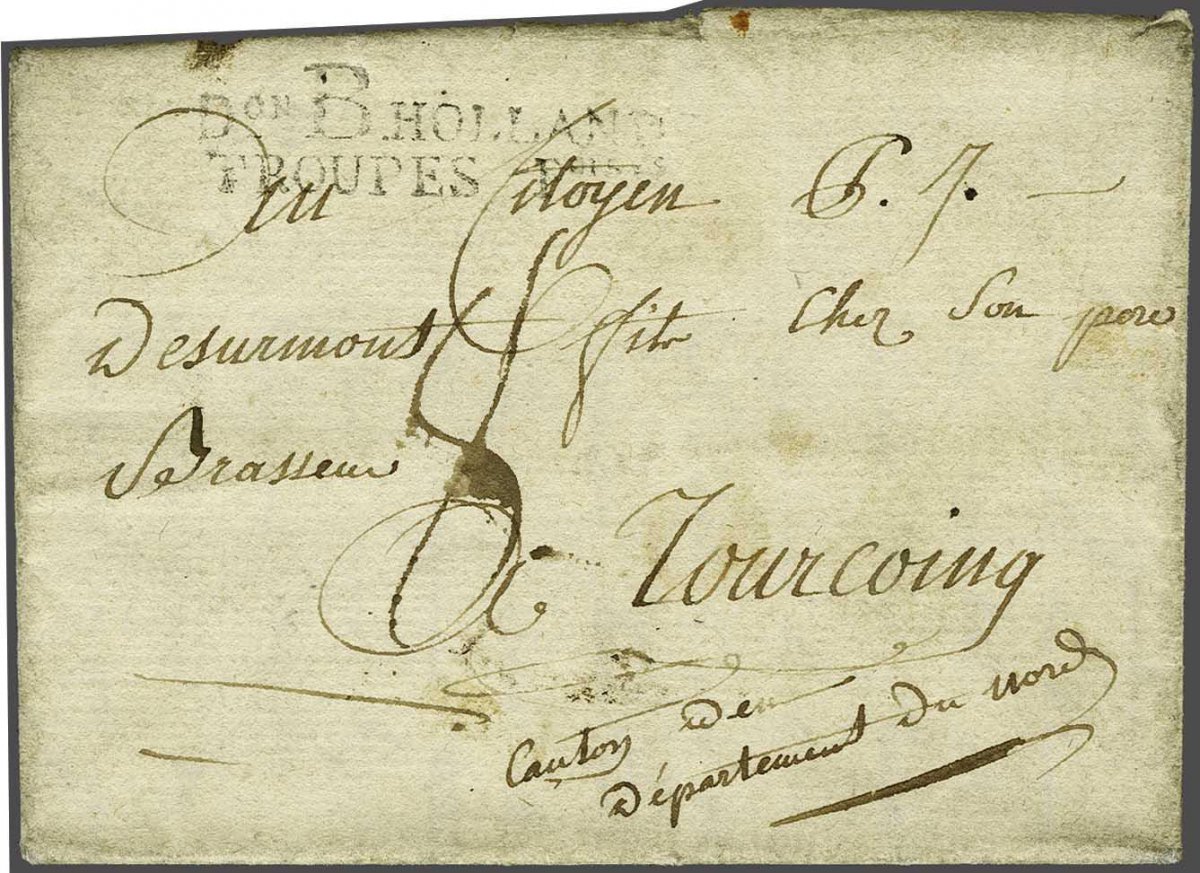 Don B. HOLLAND
TROUPES
Au Citoyen P. J.
Desurmont fils Chez Son pere
Brasseur
8
A Tourcoing
Canton de
Département du Nord